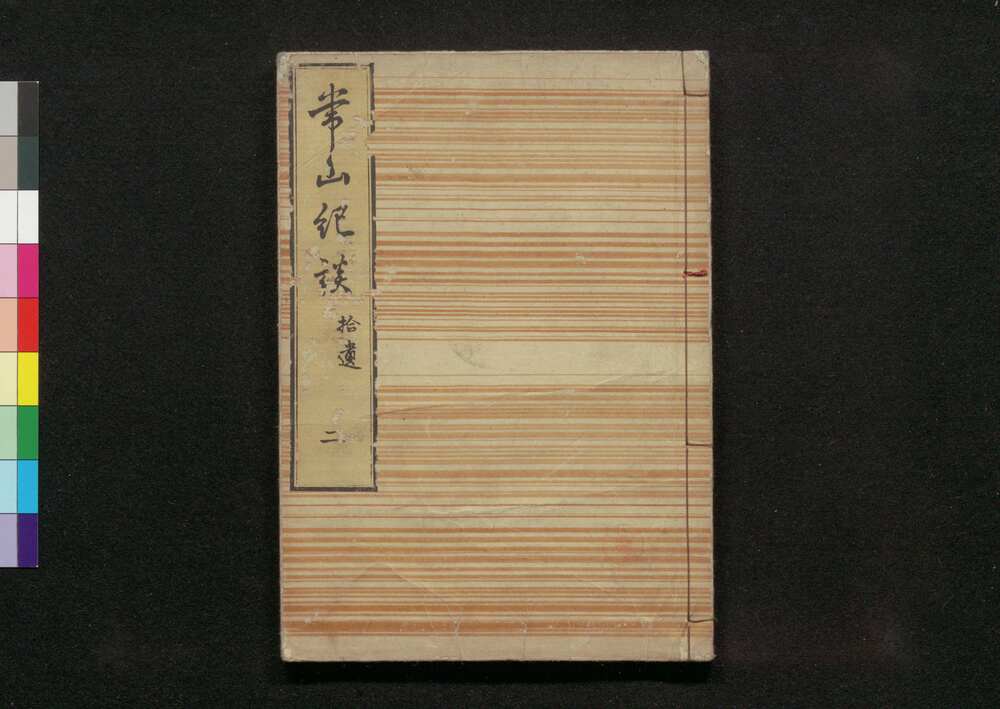 常山紀談
拾遺
二